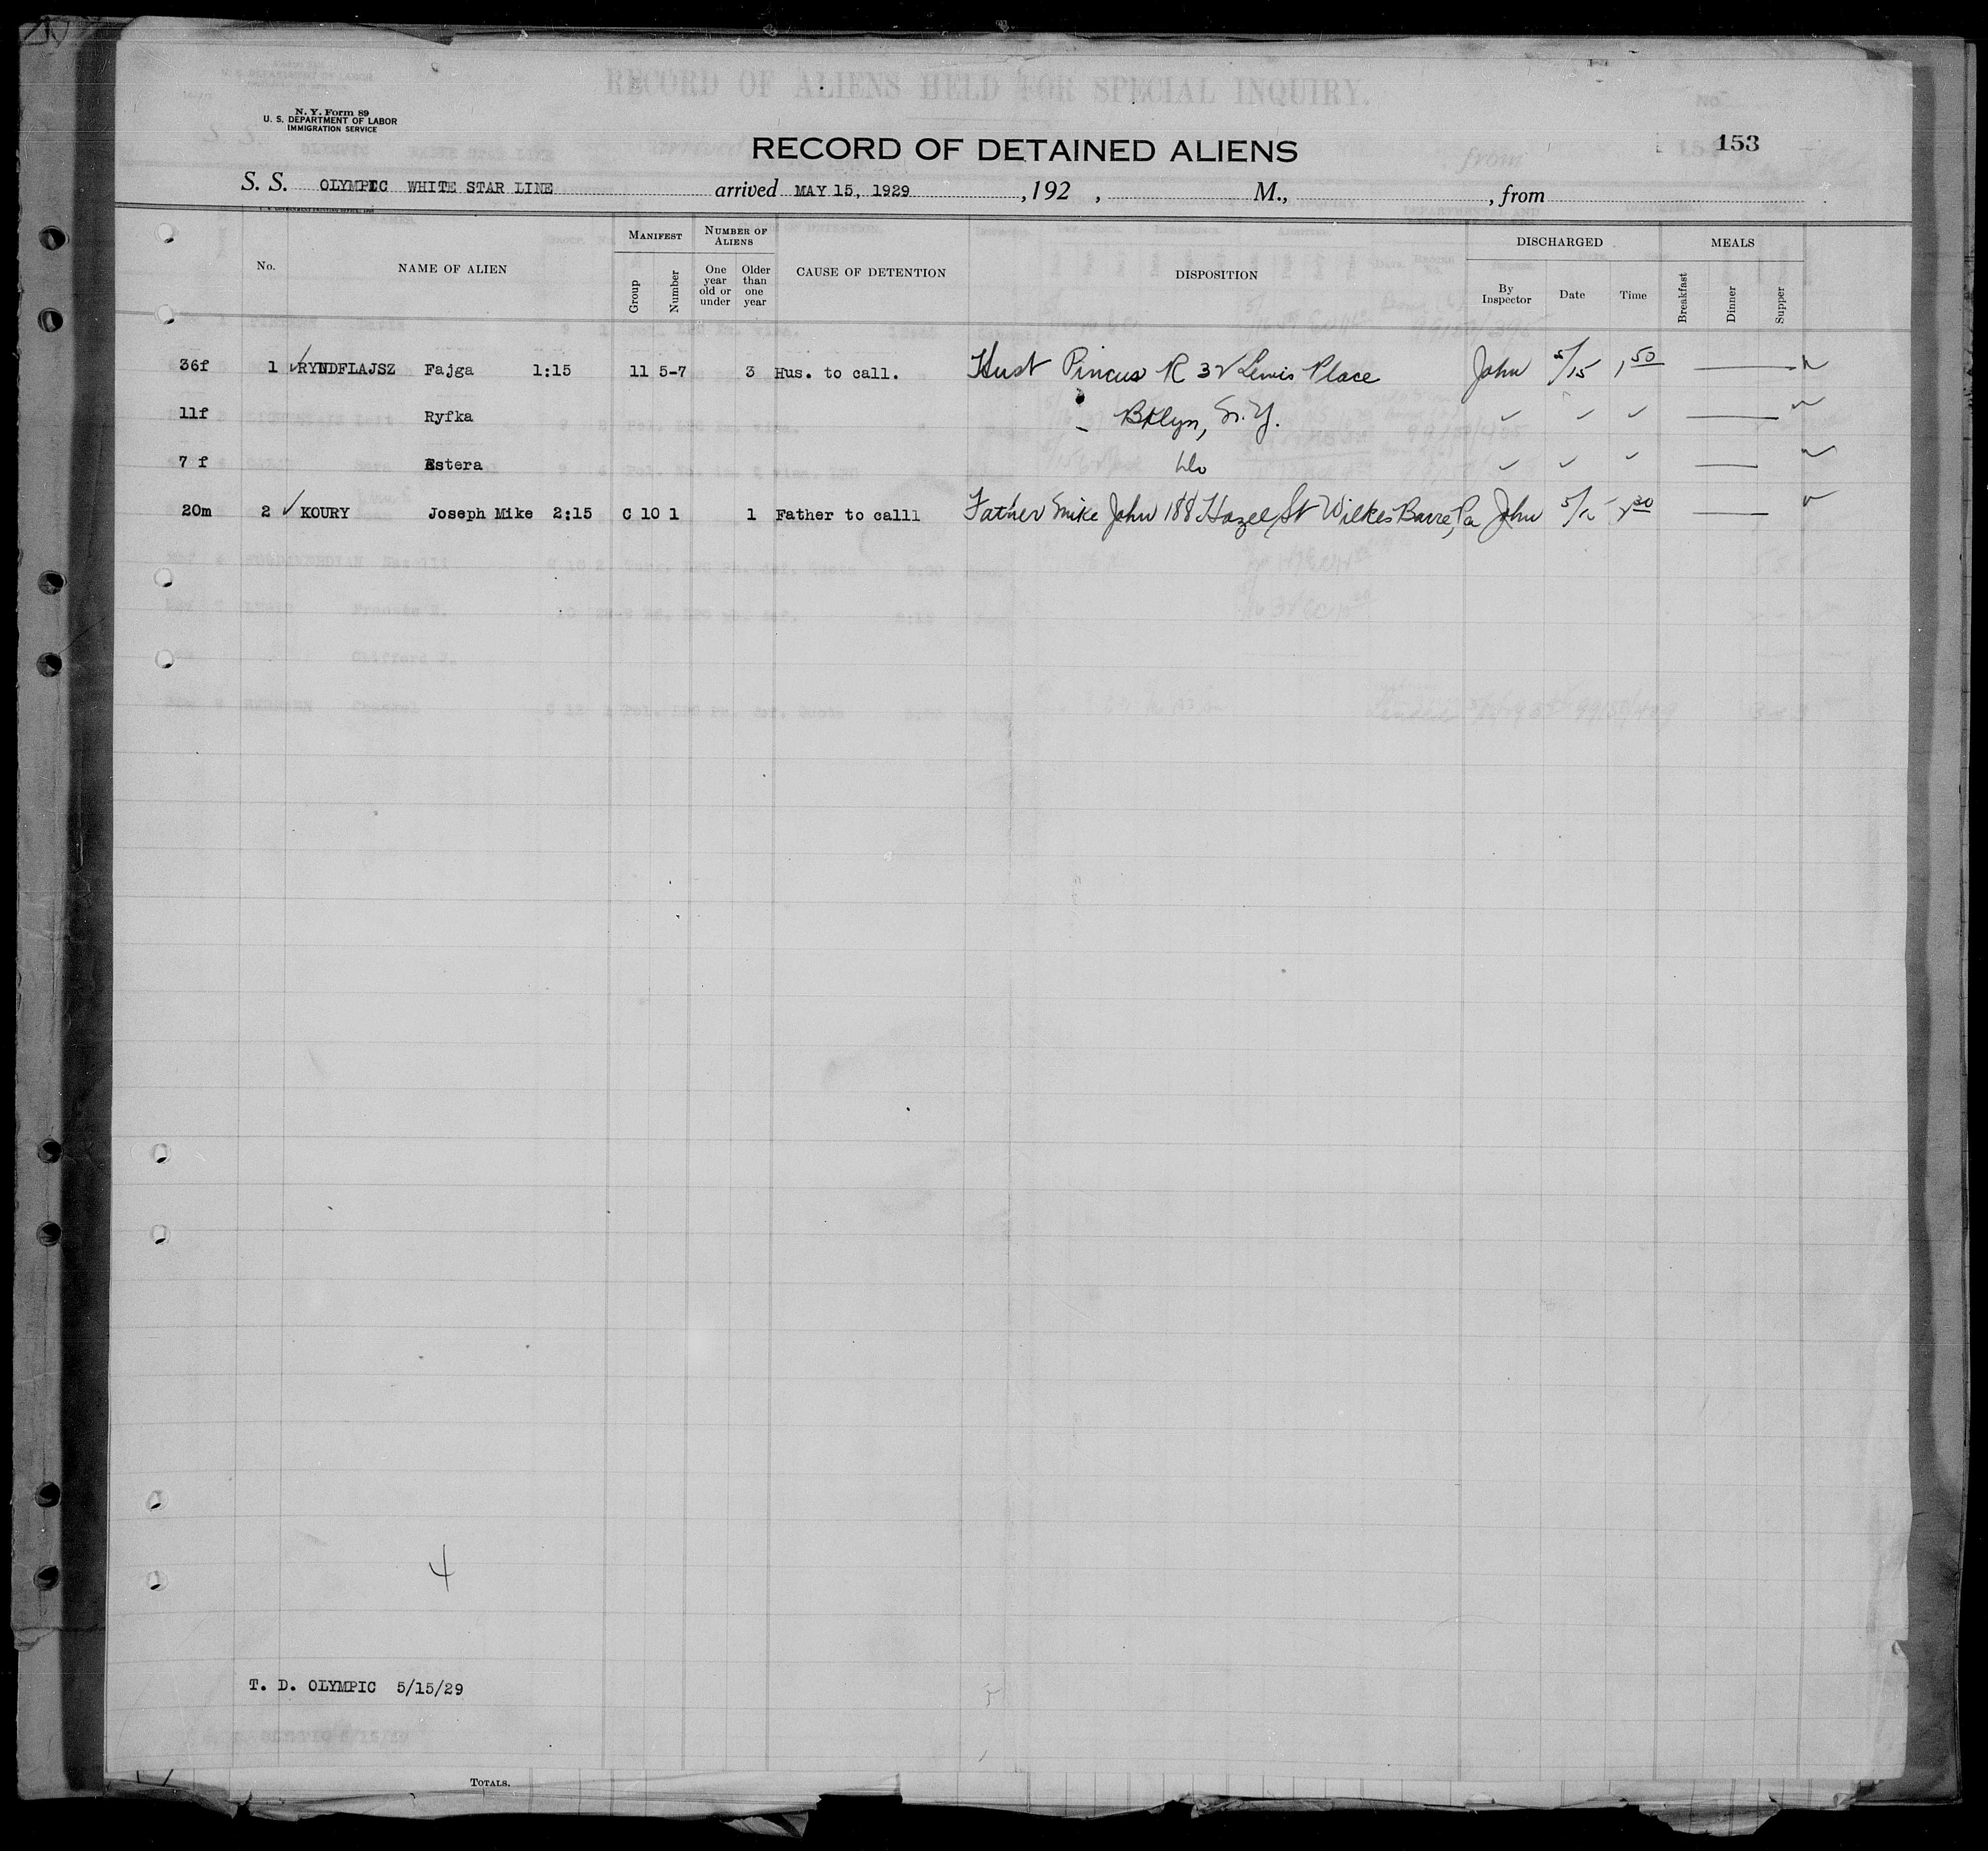 RECORD OF ALIENS HELD FOR SPECIAL INQUIRY.
N. Y. Form 89
U. S. DEPARTMENT OF LABOR
IMMIGRATION SERVICE
RECORD OF DETAINED ALIENS
153
S. S. OLYMPIC WHITE STAR LINE arrived MAY 15, 1929 , 192 , M., , from
No. NAME OF ALIEN MANIFEST Group Number NUMBER OF ALIENS One year old or under Older than one year CAUSE OF DETENTION DISPOSITION DISCHARGED By Inspector Date Time MEALS Breakfast Dinner Supper
36f 1 ✓ RYNDFLAJSZ Fajga 1:15 11 5-7 3 Hus. to call. Husb Pincus R 32 Lewis Place John 5/15 1 50
11f Ryfka Bklyn, N.Y. ✓ ✓ ✓
7 f Estera Do ✓ ✓ ✓
20m 2 ✓ KOURY Joseph Mike 2:15 C 10 1 1 Father to calll Father Mike John 188 Hazel St Wilkes Barre, Pa John 5/15 30
4
T. D. OLYMPIC 5/15/29
TOTALS.